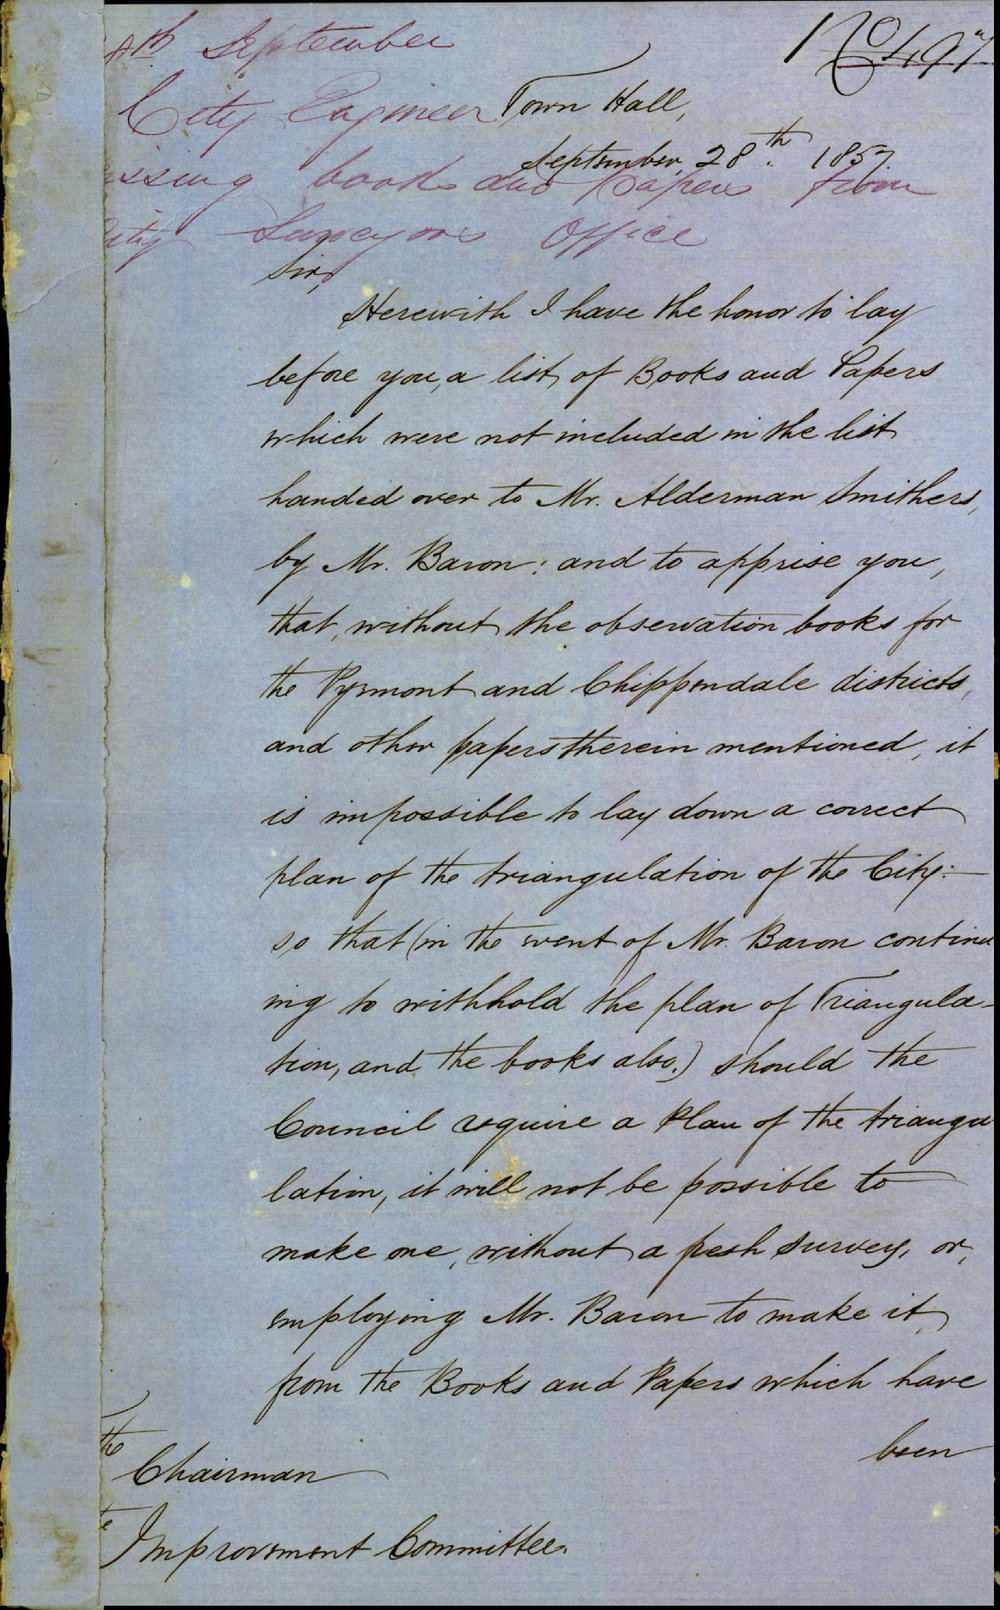 No 497
September
City Engineer
Town Hall,
September, 28th. 1857.
books and Papers from
Surveyors Office
Sir,
Herewith I have the honor to lay
before you, a list, of Books and Papers
which were not included in the list
handed over to Mr. Alderman Smithers,
by Mr. Baron; and to apprise you,
that, without the observation books for
the Pyrmont and Chippendale districts,
and other papers therein mentioned, it
is impossible to lay down a correct
plan of the triangulation of the City:—
so that (in the event of Mr. Baron continu
ing to withhold the plan of Triangula-
tion, and the books also.) should the
Council require a Plan of the triangu
lation, it will not be possible to
make one, without a fresh survey, or,
employing Mr. Baron to make it,
from the Books and Papers which have
been
The
Chairman
Improvement Committee.